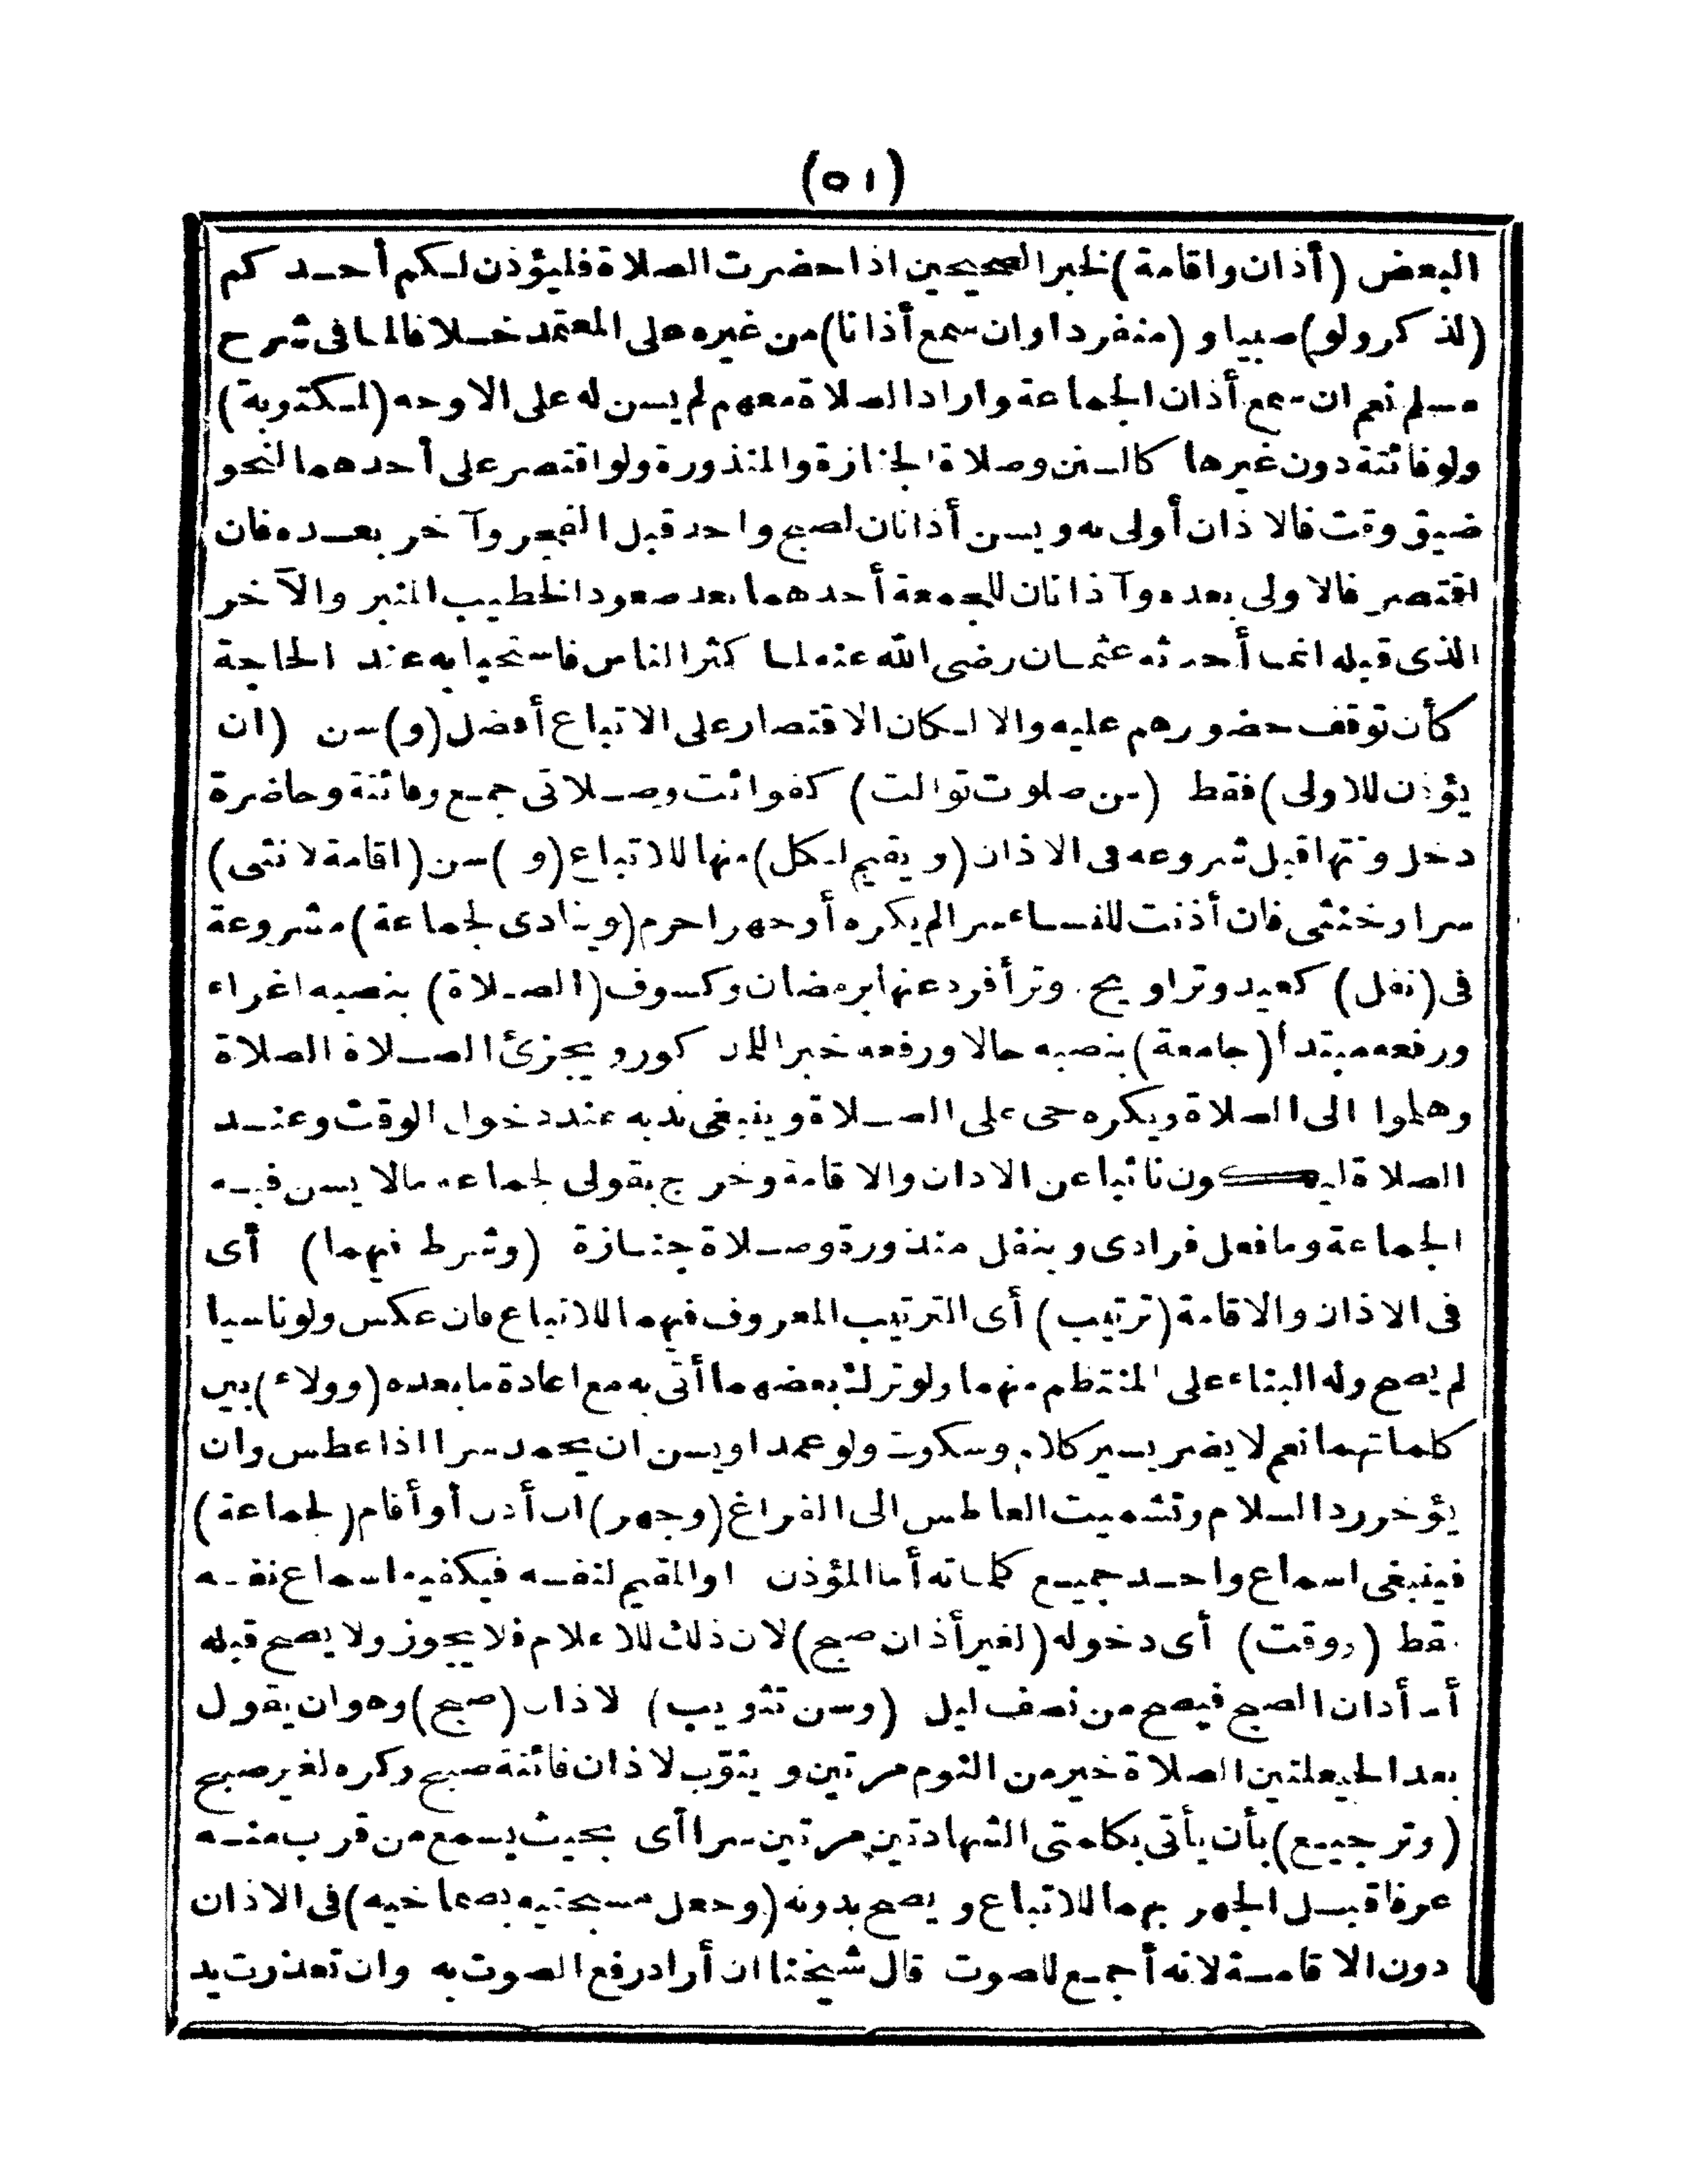 (٥١)
البعض (أذان واقامة) لخبر الصحيحين اذا حضرت الصلاة فليؤذن لكم أحدكم
(لذكر ولو) صبيا و (منفردا وان سمع أذانا) من غيره على المعتمد خلافا لما فى شرح
مسلم نعم ان سمع أذان الجماعة وأراد الصلاة معهم لم يسن له على الاوجه (لمكتوبة)
ولو فائتة دون غيرها كالسنن وصلاة الجنازة والمنذورة ولو اقتصر على أحدهما لنحو
ضيق وقت فالاذان أولى به ويسن أذانان لصبح واحد قبل الفجر وآخر بعده فان
اقتصر فالاولى بعده وآذانان للجمعة أحدهما بعد صعود الخطيب المنبر والآخر
الذى قبله انما أحدثه عثمان رضى الله عنه لما كثر الناس فاستحبابه عند الحاجة
كأن توقف حضورهم عليه والا لكان الاقتصار على الاتباع أفضل (و) سن (ان
يؤذن للاولى) فقط (من صلوت توالت) كفوائت وصلاتى جمع وفائتة وحاضرة
دخل وقتها قبل شروعه فى الاذان (ويقيم لكل) منها للاتباع (و) سن (اقامة لانثى)
سرا وخنثى فان أذنت للنساء سرا لم يكره أو جهرا حرم (وينادى لجماعة) مشروعة
فى (نفل) كعيد وتراويح ووتر أفرد عنها برمضان وكسوف (الصلاة) بنصبه اغراء
ورفعه مبتدأ (جامعة) بنصبه حالا ورفعه خبرا للمذكور ويجزئ الصلاة الصلاة
وهلموا الى الصلاة ويكره حى على الصلاة وينبغى ندبه عند دخول الوقت وعند
الصلاة ليكون نائبا عن الاذان والاقامة وخرج بقولى لجماعة مالا يسن فيه
الجماعة وما فعل فرادى وبنفل منذورة وصلاة جنازة (وشرط فيهما) أى
فى الاذان والاقامة (ترتيب) أى الترتيب المعروف فيهما للاتباع فان عكس ولو ناسيا
لم يصح وله البناء على المنتظم منهما ولو ترك بعضهما أتى به مع اعادة ما بعده (وولاء) بين
كلماتهما نعم لا يضر يسير كلام وسكوت ولو عمدا ويسن ان يحمد سرا اذا عطس وان
يؤخر رد السلام وتشميت العاطس الى الفراغ (وجهر) ان أذن أو أقام (لجماعة)
فينبغى اسماع واحد جميع كلماته أما المؤذن او المقيم لنفسه فيكفيه اسماع نفسه
فقط (ووقت) أى دخوله (لغير أذان صبح) لان ذلك للاعلام فلا يجوز ولا يصح قبله
أما أذان الصبح فيصح من نصف ليل (وسن تثويب) لاذان (صبح) وهو ان يقول
بعد الحيعلتين الصلاة خير من النوم مرتين ويثوّب لاذان فائتة صبح وكره لغير صبح
(وترجيع) بأن يأتى بكلمتى الشهادتين مرتين سرا أى بحيث يسمع من قرب منه
عرفا قبل الجهر بهما للاتباع ويصح بدونه (وجعل مسبحتيه بصماخيه) فى الاذان
دون الاقامة لانه أجمع للصوت قال شيخنا ان أراد رفع الصوت به وان تعذرت يد